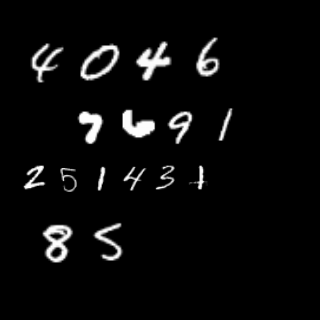 4046
7691
251431
85